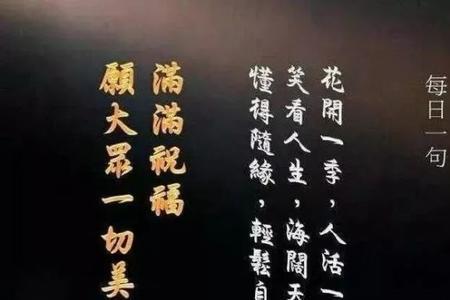 每日一句
花開一季，人活一
笑看人生，海闊天
懂得隨緣，輕鬆自
滿滿祝福
願大眾一切美